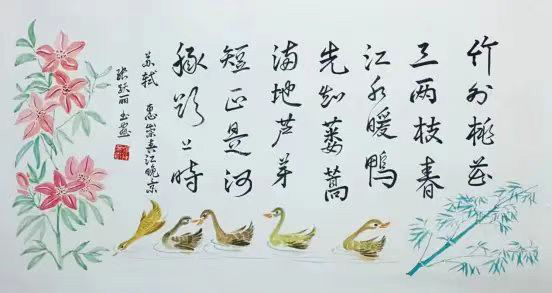 竹外桃花
三两枝春
江水暖鸭
先知蒌蒿
满地芦芽
短正是河
豚欲上时
苏轼 惠崇春江晚景
张跃丽 书画